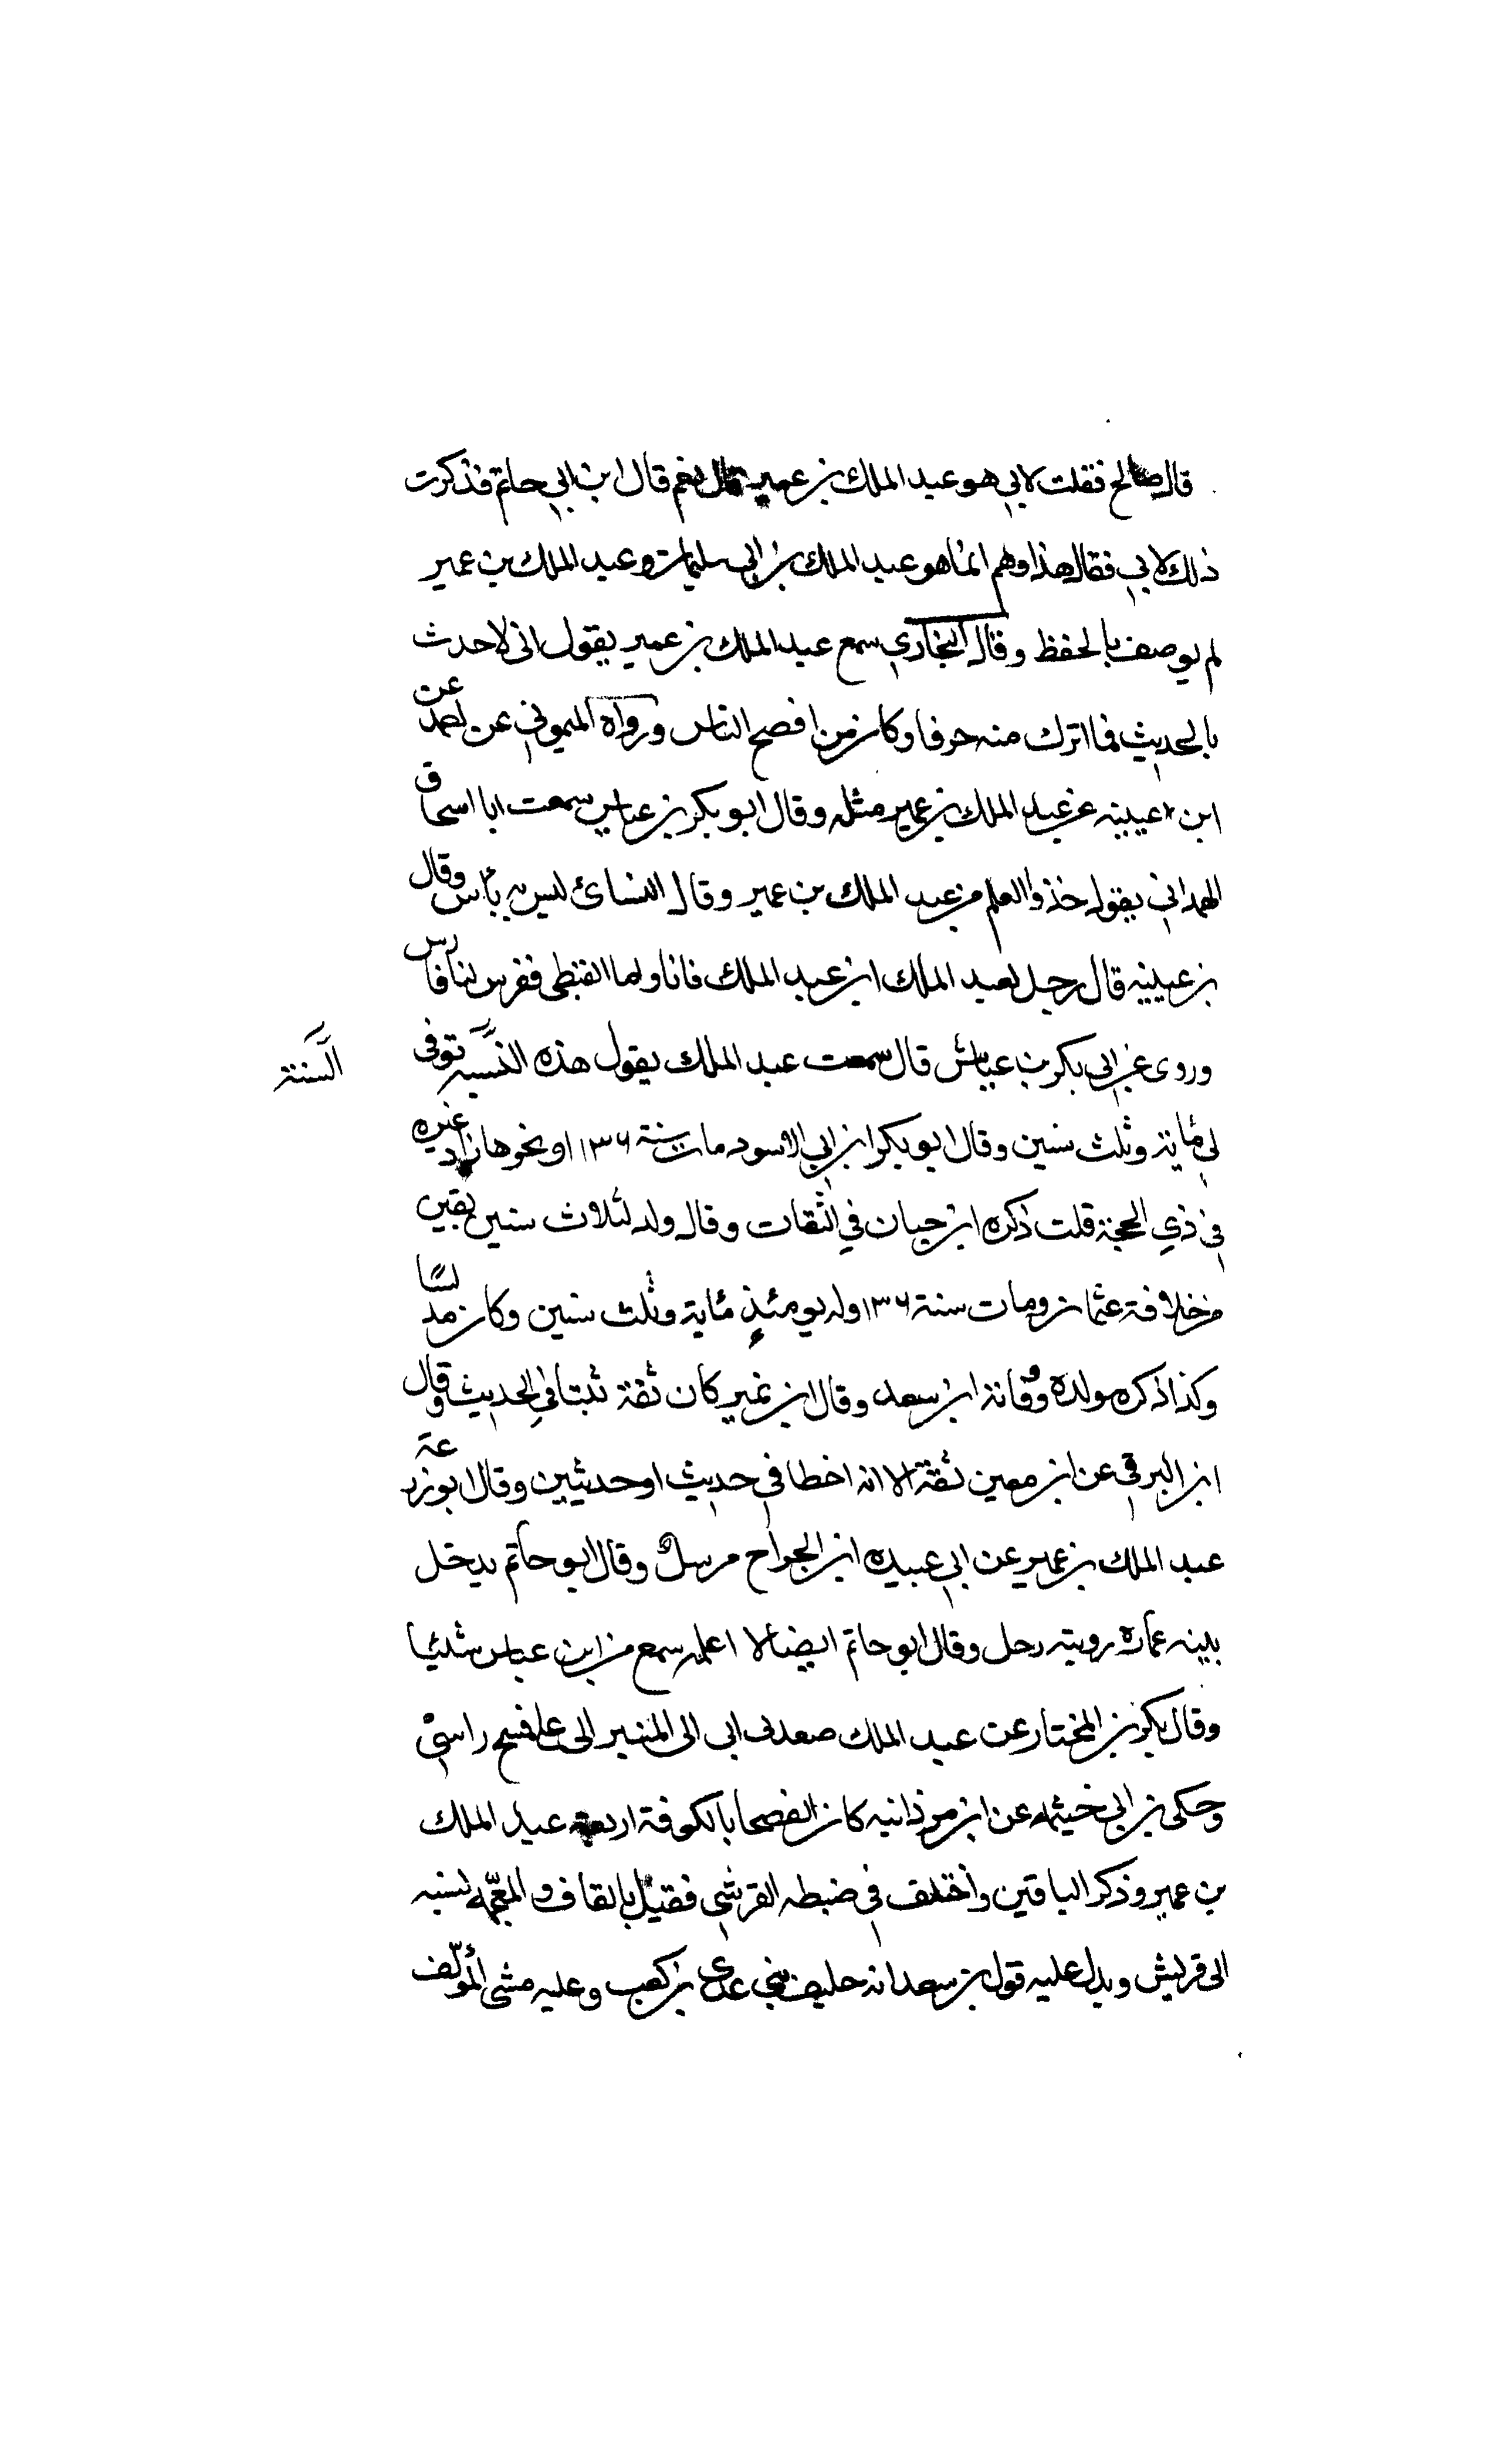 قال صالح فقلت لابي هو عبد الملك بن عمير قال نعم قال ابن ابي حاتم فذكرت
ذلك لابي فقال هذا وهم انما هو عبد الملك بن ابي سليمان وعبد الملك بن عمير
لم يوصف بالحفظ وقال البخاري سمع عبد الملك بن عمير يقول اني لاحدث
بالحديث فما اترك منه حرفا وكان من افصح الناس ورواه الميموني عن احمد عن
ابن عيينه عن عبد الملك بن عمير مثله وقال ابو بكر بن عياس سمعت ابا اسحاق
الهمداني يقول خذوا العلم من عبد الملك بن عمير وقال النسائ ليس به بأس وقال
بن عيينه قال رجل لعبد الملك ابن عبد الملك فانا ولما القبطي ففرس لنا فارس
وروى عن ابي بكر بن عياش قال سمعت عبد الملك يقول هذه النسبه توفى
السنة
لي مأية وثلث سنين وقال ابو بكر ابن ابي الاسود مات سنة ١٣٦ او نحوها زاد غيره
في ذي الحجة قلت ذكره ابن حبان في الثقات وقال ولد لثلاث سنين بقين
من خلافة عثمان ومات سنة ١٣٦ وله يومئذ مأية وثلث سنين وكان مدلسًا
وكذا ذكره مولده ووفاته ابن سعد وقال ابن نمير كان ثقة ثبتا في الحديث وقال
ابن البرقي عن ابن معين ثقة الا انه اخطا في حديث او حديثين وقال ابو زرعة
عبد الملك بن عمير عن ابي عبيده ابن الجراح مرسل وقال ابو حاتم يدخل
بينه عمارة رويته رحل وقال ابو حاتم ايضا لا اعلمه سمع من ابن عباس شئيا
وقال بكر بن المختار عن عبد الملك صعد بي ابى الى المنبر الى على فمسح راسي
وحكى بن ابي خيثمه عن ابن مرذانيه كان الفصحا بالكوفة اربعة عبد الملك
بن عمير وذكر الباقين واختلف في ضبطه القرشي فقيل بالقاف والمعجمه نسبه
الى قريش ويدل عليه قول بن سعد انه حليف بني عدي بن كعب وعليه مشى المؤلف